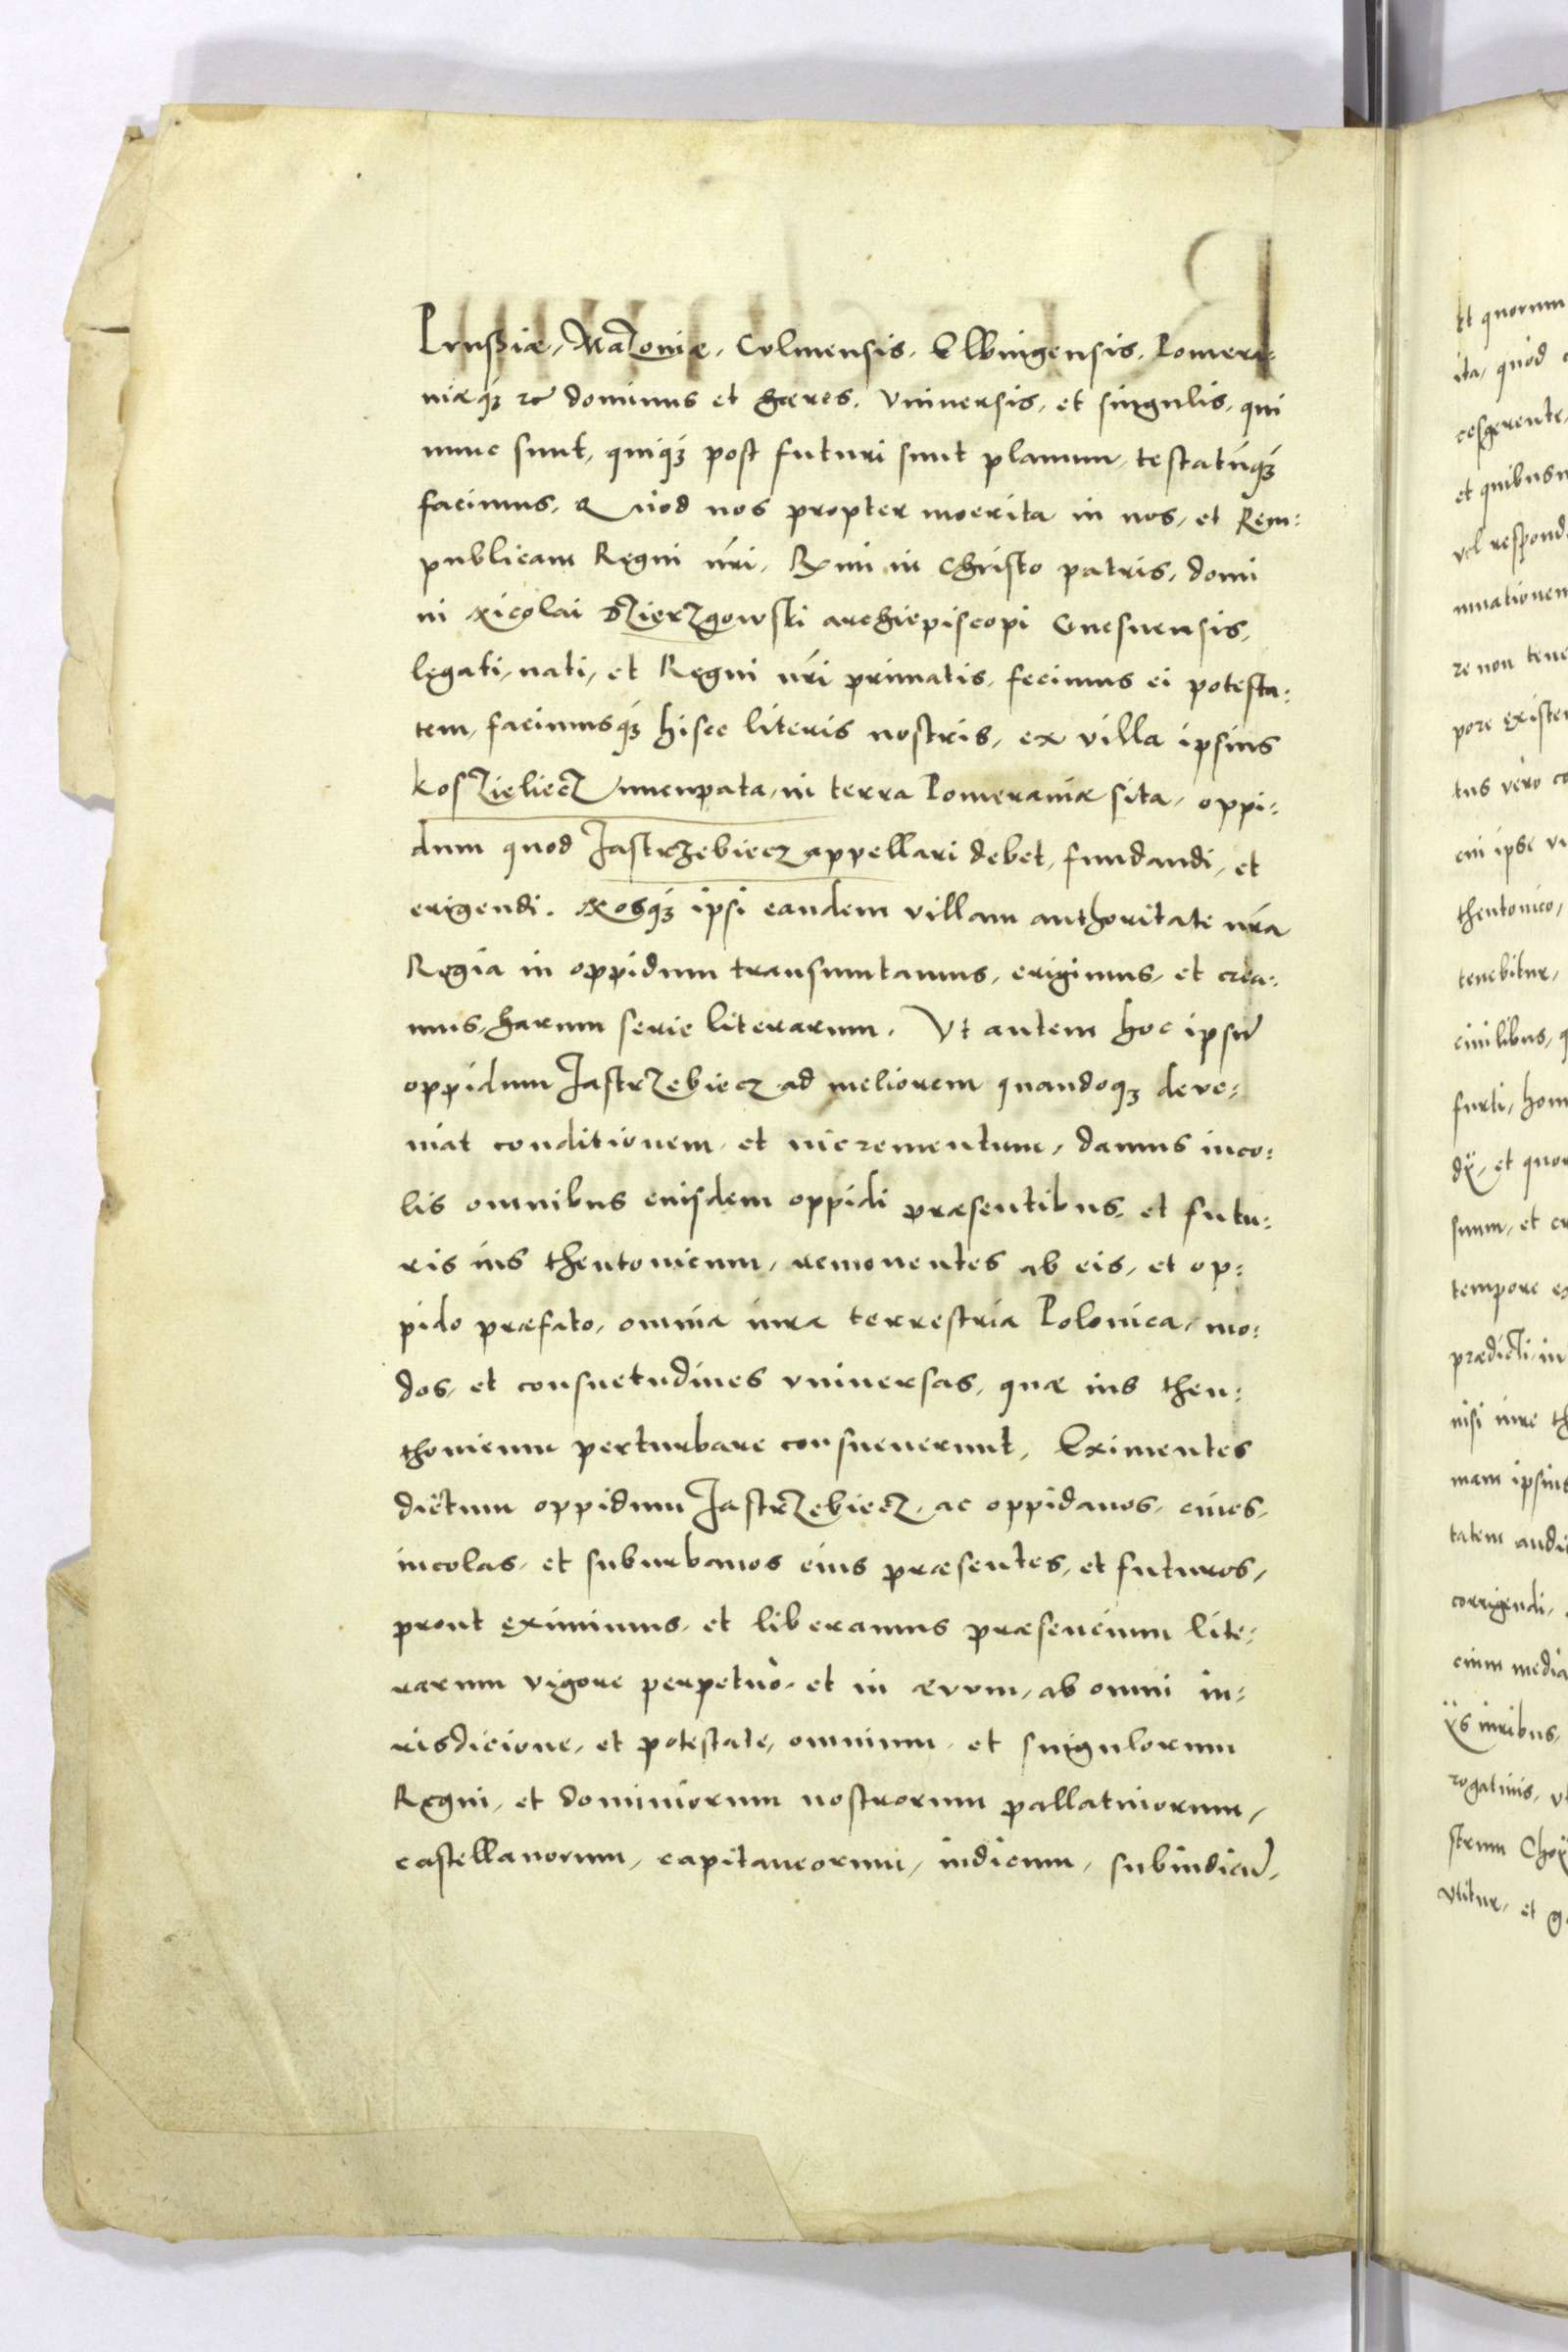 Prussiæ, Mazoniæ, Culmensis, Elbingensis, Pomera=
niæq₃ etc dominus et hæres. Vniuersis, et singulis, qui
nunc sunt, quiq₃ post futuri sunt planum, testatúq₃
facimus. Quòd nos propter moerita in nos, et Rem=
publicam Regni nŕi, Rmi in Christo patris, domi
ni Nicolai Dzierzgowski archiepiscopi Gnesnensis,
legati, nati, et Regni nŕi primatis, fecimus ei potesta=
tem, facimusq₃ hisce literis nostris, ex villa ipsius
Koszieliecz nuncupata, in terra Pomeraniæ sita, oppi=
dum quod Jastrzebiecz appellari debet, fundandi, et
erigendi. Nosq₃ ipsi eandem villam authoritate nŕa
Regia in oppidum transmutamus, erigimus, et crea=
mus, harum serie literarum. Vt autem hoc ipsū
oppidum Jastrzebiecz ad meliorem quandoq₃ deve=
niat conditionem, et incrementum, damus inco=
lis omnibus eiusdem oppidi præsentibus, et futu=
ris ius theutonicum, remouentes ab eis, et op=
pido præfato, omnia iura terrestria Polonica, mo=
dos, et consuetudines vniuersas, quæ ius theu=
thonicum perturbare consueuerunt, Eximentes
dictum oppidum Jastrzebiecz, ac oppidanos, ciues,
incolas, et suburbanos eius præsentes, et futuros,
prout eximimus, et liberamus præsencium lite=
rarum vigore perpetuò, et in ævum, ab omni iu=
risdicione, et potestate, omnium, et singulorum
Regni, et dominiorum nostrorum pallatinorum,
castellanorum, capitaneorum, iudicum, subiudicū,
et quorum
ita, quòd
cesserente,
et quibus
vel respond
re non tene
pore existen
tus verò co
cui ipse vi
theutonico,
tenebitur,
ciuilibus, q
furti, hom
dÿ, et quor
suum, et cr
tempore ex
prædicti, in
nisi iure th
mam ipsius
tatem audi
corrigendi,
cium media
ÿs iuribus,
rogatiuis, vt
strum
vtitur, et g